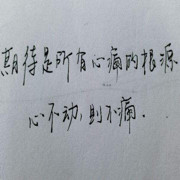 期待是所有心痛的根源
心不动,则不痛.